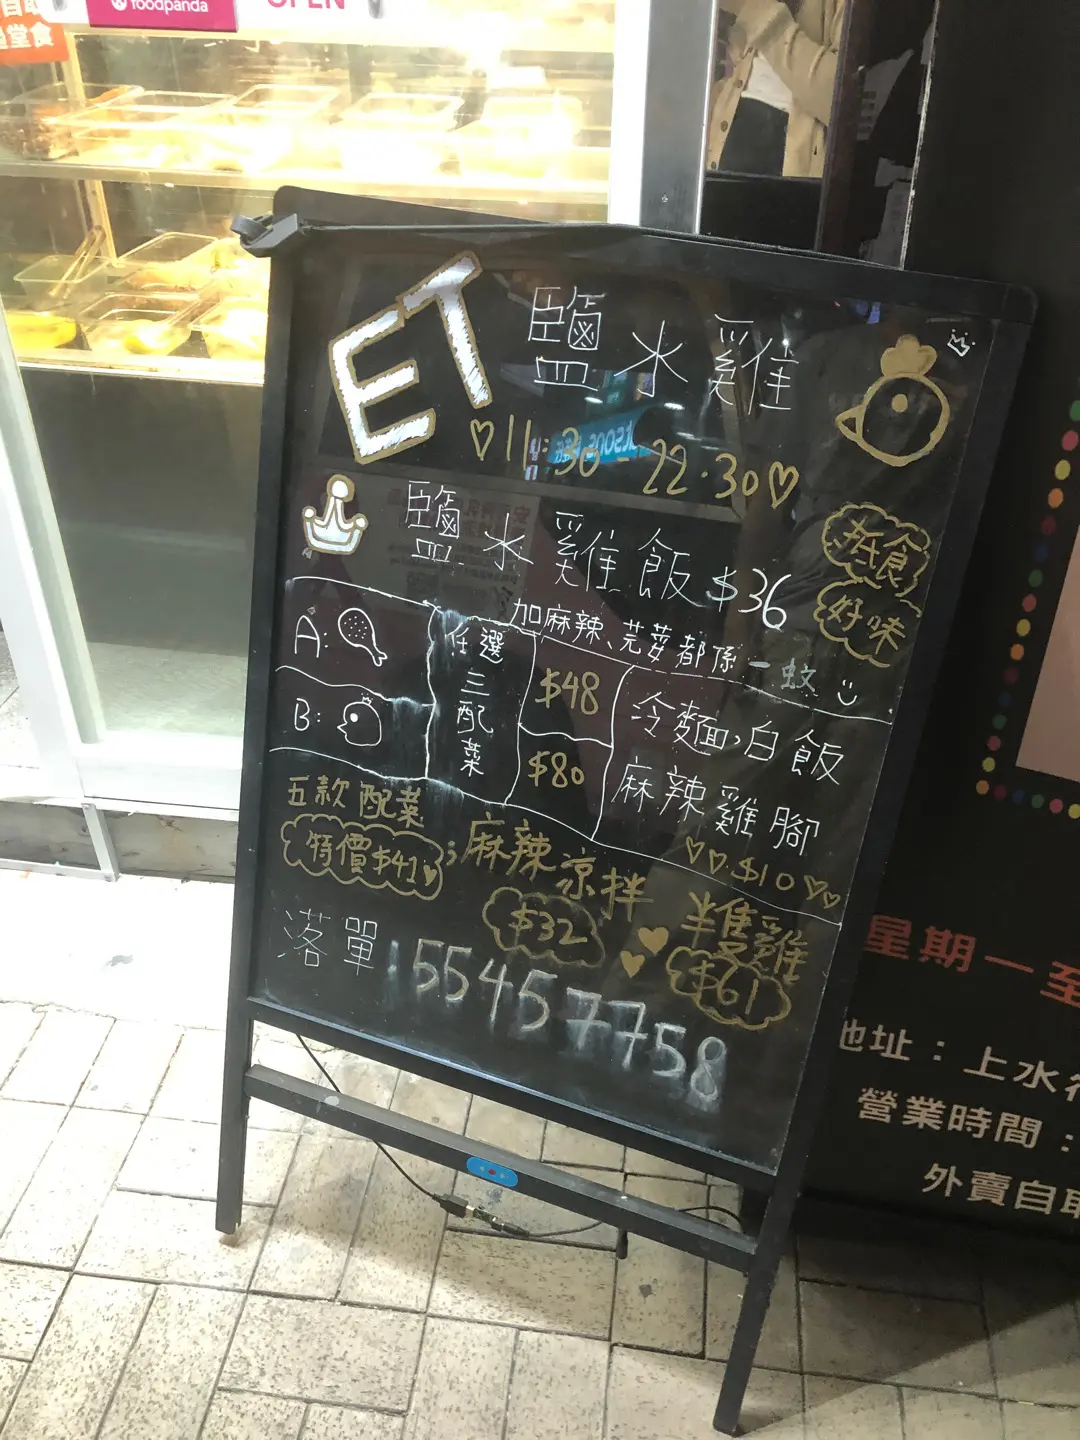 foodpanda
OPEN
自取
堂食
ET
鹽水雞
♡11:30 - 22:30♡
鹽水雞飯 $36
好味
加麻辣、芫荽都係一蚊
A:
B:
任選三配菜
$48
$80
冷麵,白飯
麻辣雞腳
♡♡$10♡♡
五款配菜
特價$41♥
麻辣涼拌
$32
半隻雞
$61
落單
55457758
星期一至
地址：上水
營業時間：
外賣自取